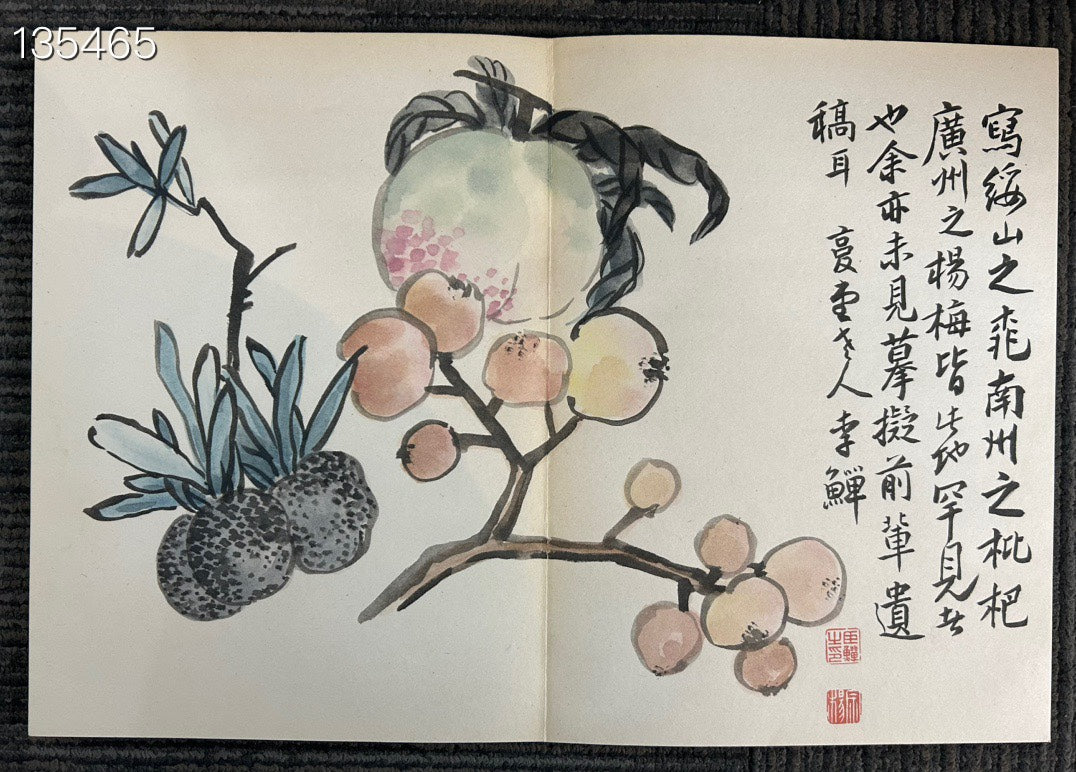 135465
寫綏山之桃南州之枇杷
廣州之楊梅皆此地罕見者
也余亦未見摹擬前輩遺
稿耳
李鱓
臣鱓之印